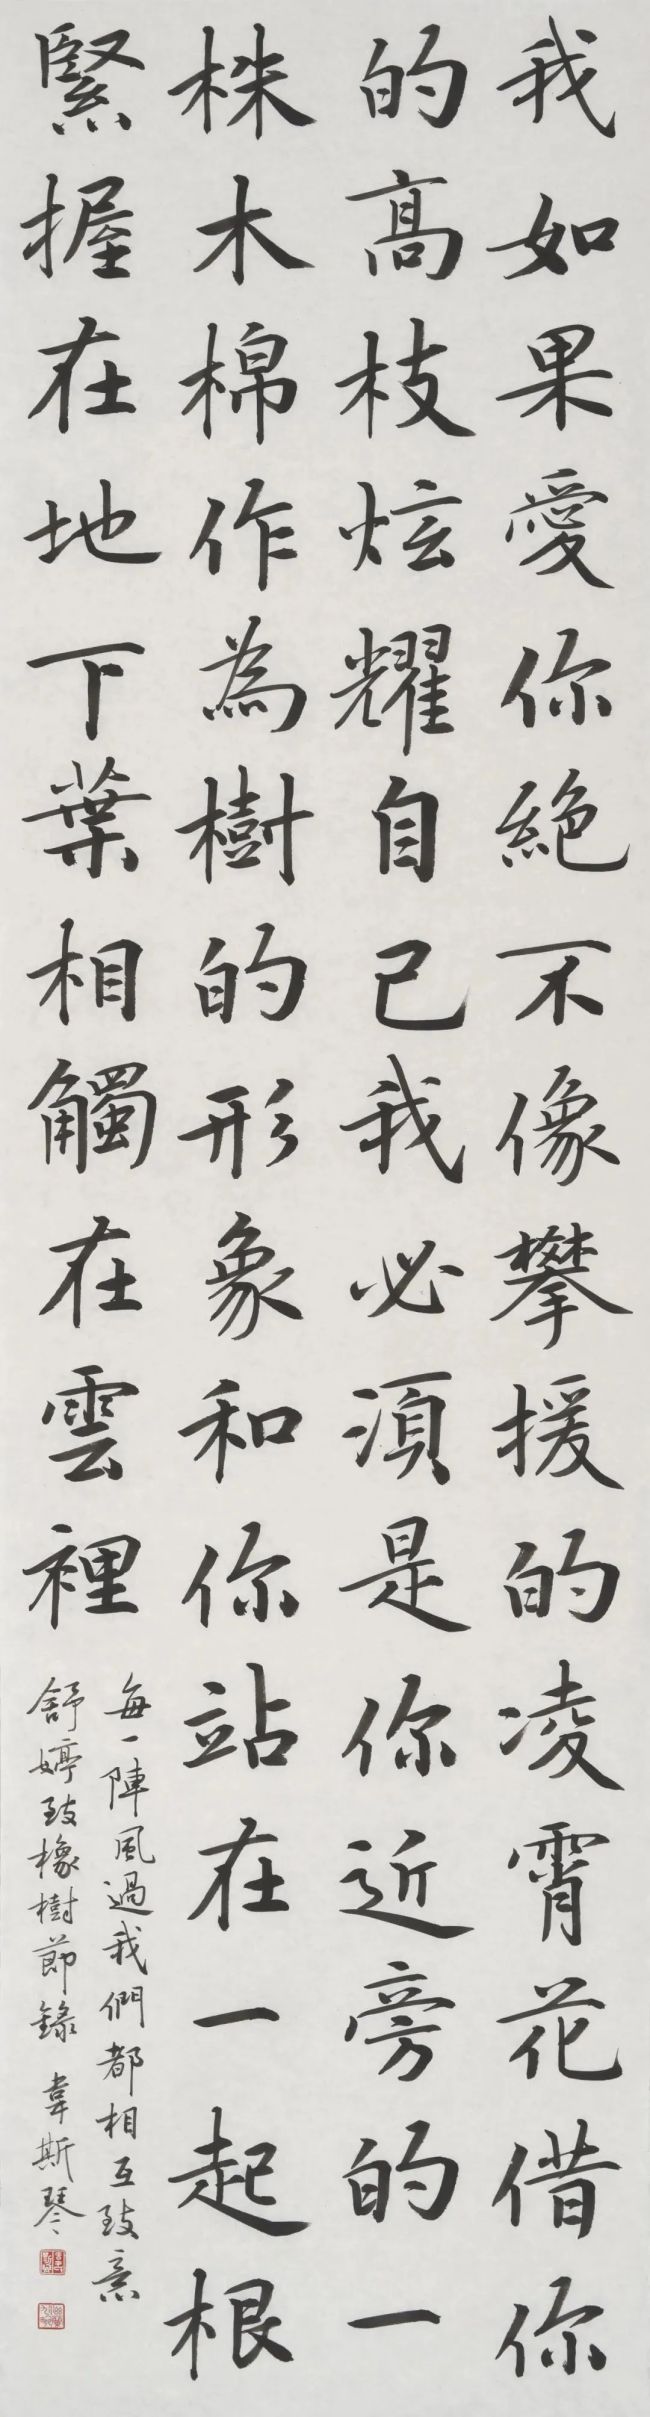 我如果愛你絕不像攀援的凌霄花借你
的高枝炫耀自己我必須是你近旁的一
株木棉作為樹的形象和你站在一起根
緊握在地下葉相觸在雲裡
每一陣風過我們都相互致意
舒婷致橡樹節錄 韋斯琴